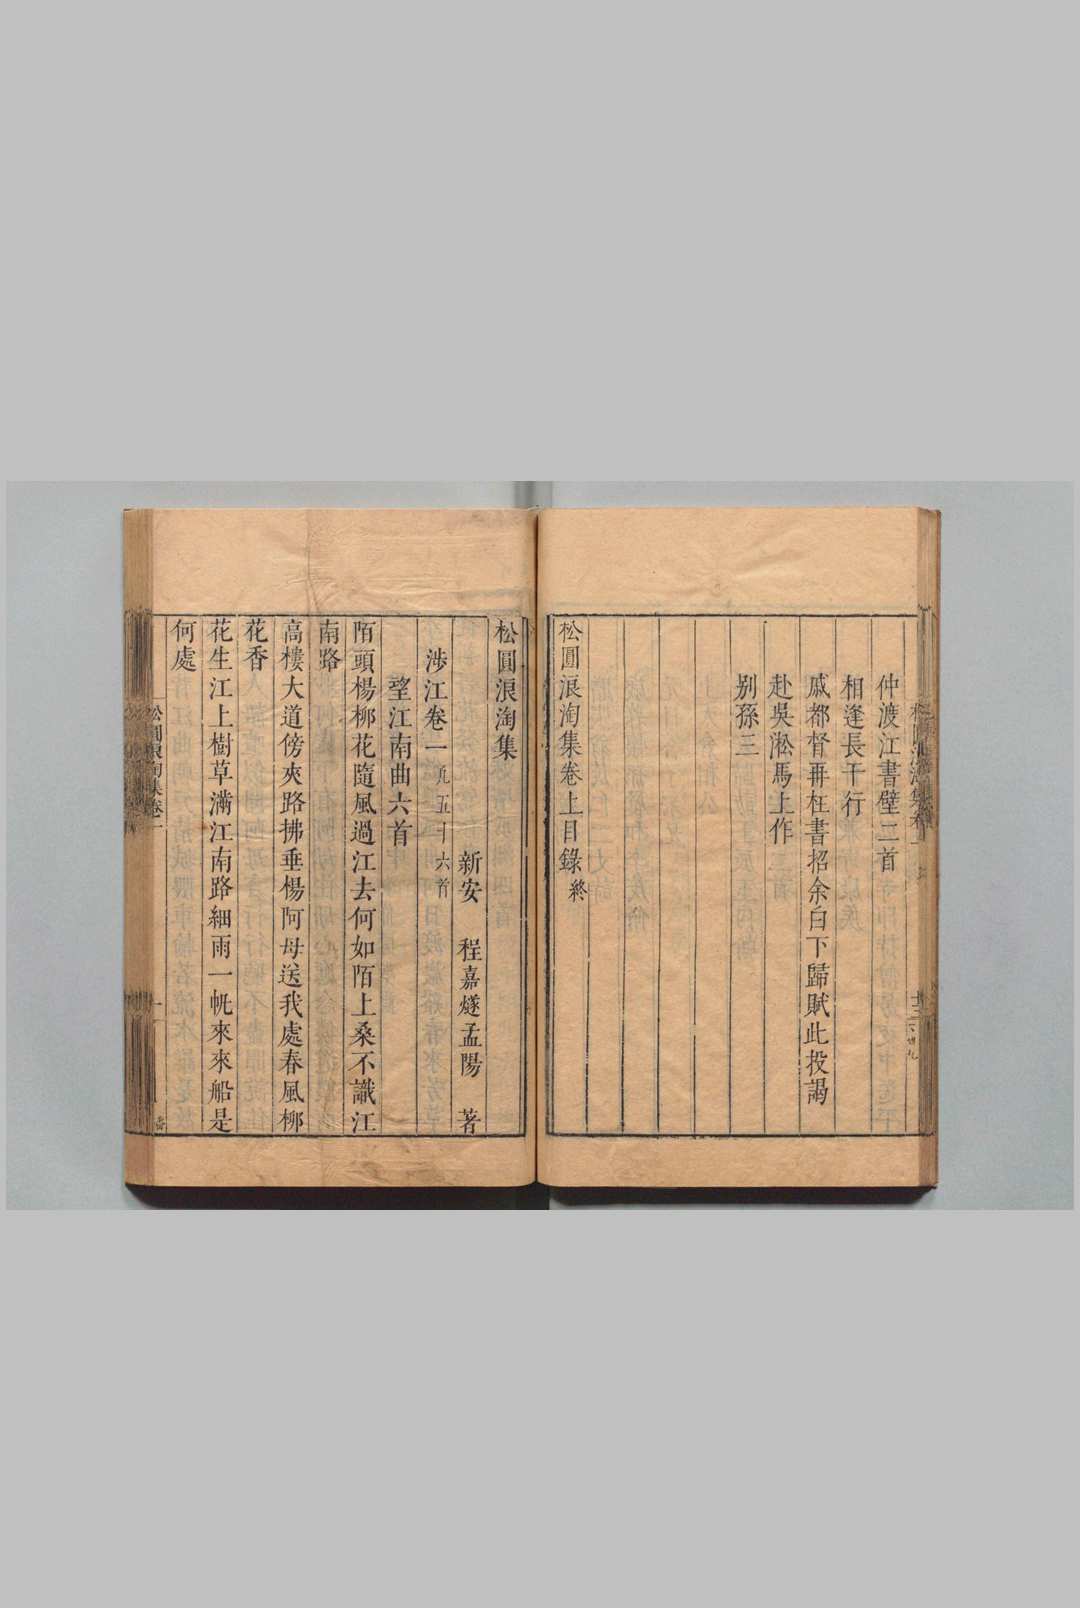 仲渡江書壁二首
相逢長干行
戚都督再枉書招余白下歸賦此投謁
赴吳淞馬上作
别孫三
松圓浪淘集卷上目錄終
松圓浪淘集
涉江卷一凡五十六首
新安 程嘉燧孟陽 著
望江南曲六首
陌頭楊柳花隨風過江去何如陌上桑不識江
南路
高樓大道傍夾路拂垂楊阿母送我處春風柳
花香
花生江上樹草滿江南路細雨一帆來來船是
何處
松圓浪淘集卷一
一